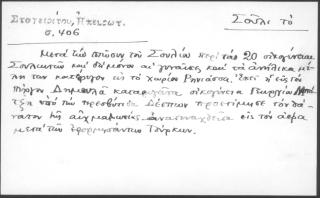 Στοχειρίτου, Ἠπειρωτ.
σ. 406
Σοῦλι τὸ
Μετὰ τὴν πτῶσιν τοῦ Σουλίου περὶ τὰς 20 οἰκογένειαι
Σουλιωτῶν καὶ δὴ μόναι αἱ γυναῖκες καὶ τὰ ἀνήλικα μέ-
λη των κατέφυγον εἰς τὸ χωρίον Ρηνιάσσα, ἐκεῖ ἡ εἰς τὸν
πύργον Δημουλᾶ καταφυγοῦσα οἰκογένεια Γεωργίου Μπό-
τζη ὑπὸ τὴν πρεσβῦτιν Δέσπων προετίμησε τὸν θά-
νατον τῆς αἰχμαλωσίας ἀνατιναχθεῖσα εἰς τὸν ἀέρα
μετὰ τῶν ἐφορμησάντων Τούρκων.